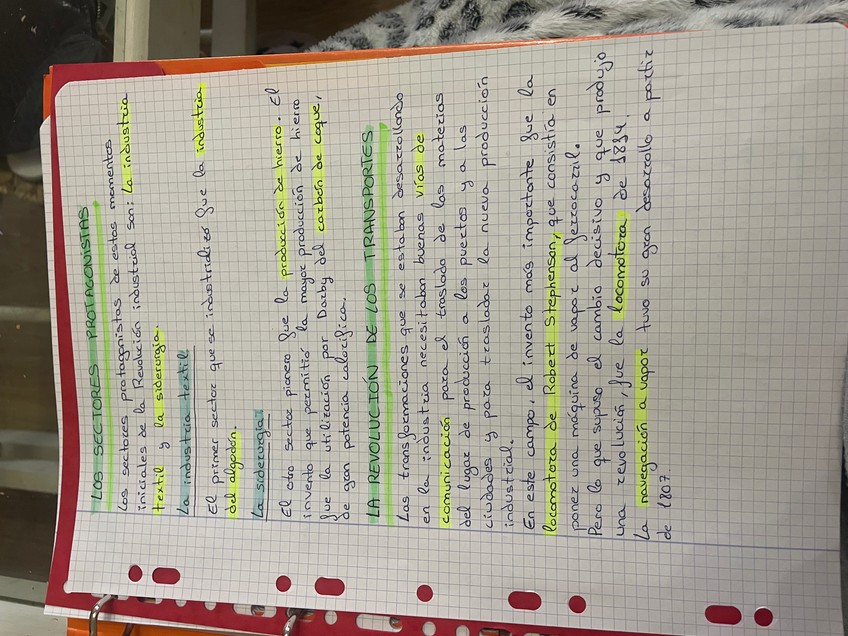 LOS SECTORES PROTAGONISTAS
Los sectores protagonistas de estos momentos
iniciales de la Revolución industrial son: La industria
textil y la siderurgia.
La industria textil
El primer sector que se industrializó fue la industria
del algodón.
La siderurgia:
El otro sector pionero fue la producción de hierro. El
invento que permitió la mayor producción de hierro
fue la utilización por Darby del carbón de coque,
de gran potencia calorífica.
LA REVOLUCIÓN DE LOS TRANSPORTES
Las transformaciones que se estaban desarrollando
en la industria necesitaban buenas vías de
comunicación para el traslado de las materias
del lugar de producción a los puertos y a las
ciudades y para trasladar la nueva producción
industrial.
En este campo, el invento más importante fue la
locomotora de Robert Stephenson, que consistía en
poner una máquina de vapor al ferrocarril.
Pero lo que supuso el cambio decisivo y que produjo
una revolución, fue la locomotora, de 1814.
La navegación a vapor tuvo su gran desarrollo a partir
de 1807.